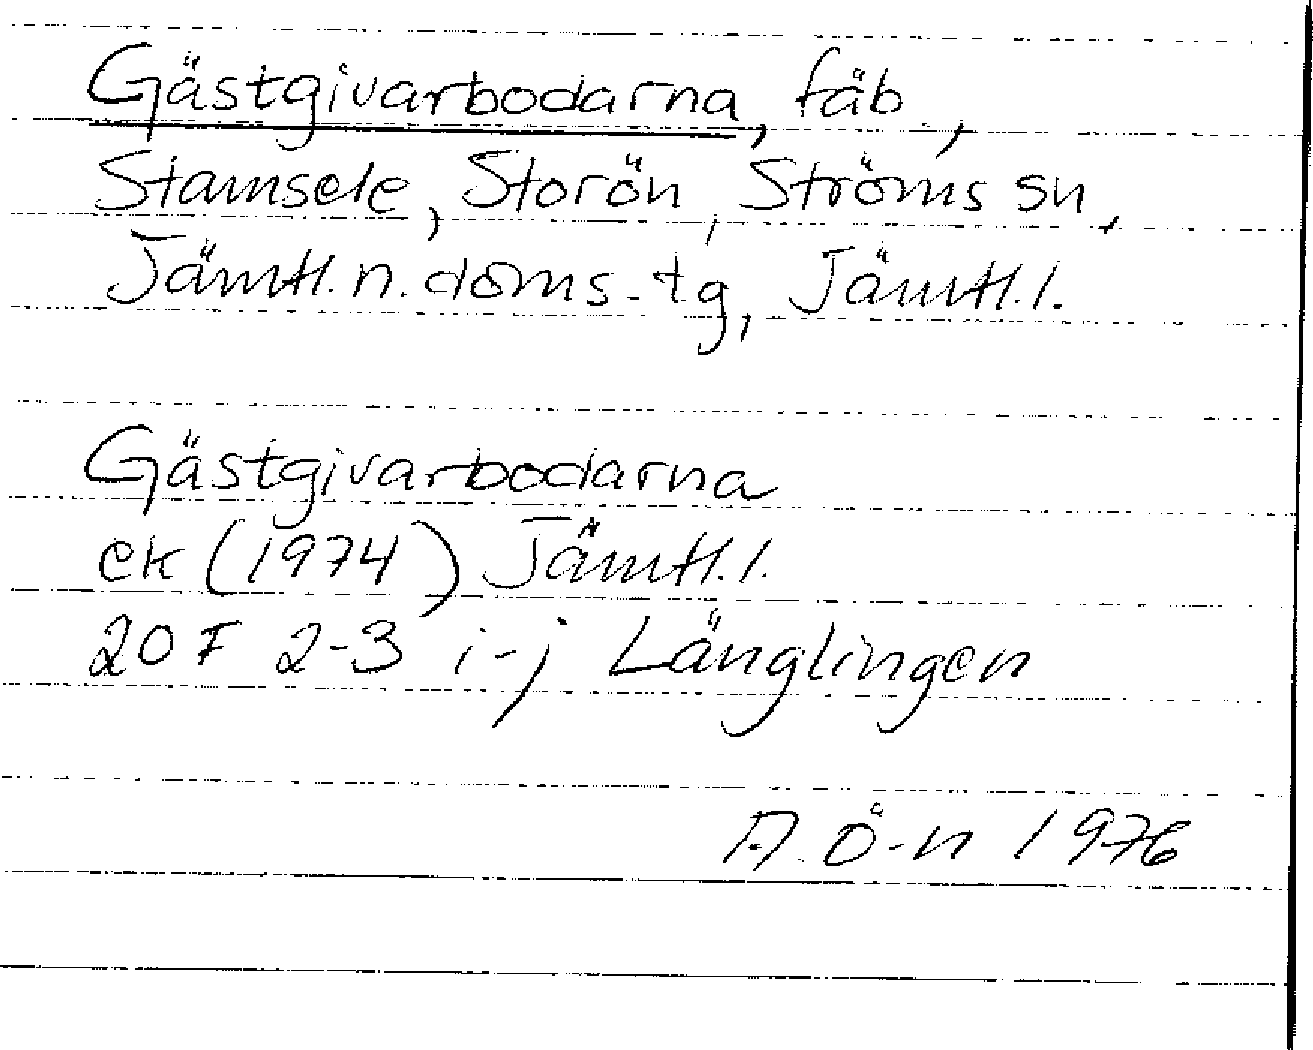 Gästgivarbodarna, fäb.,
Stamsele, Storön, Ströms sn,
Jämtl. n. doms.tg, Jämtl. l.
Gästgivarbodarna
ek (1974) Jämtl. l.
20 F 2-3 i-j Länglingen
A. Ö-n 1976